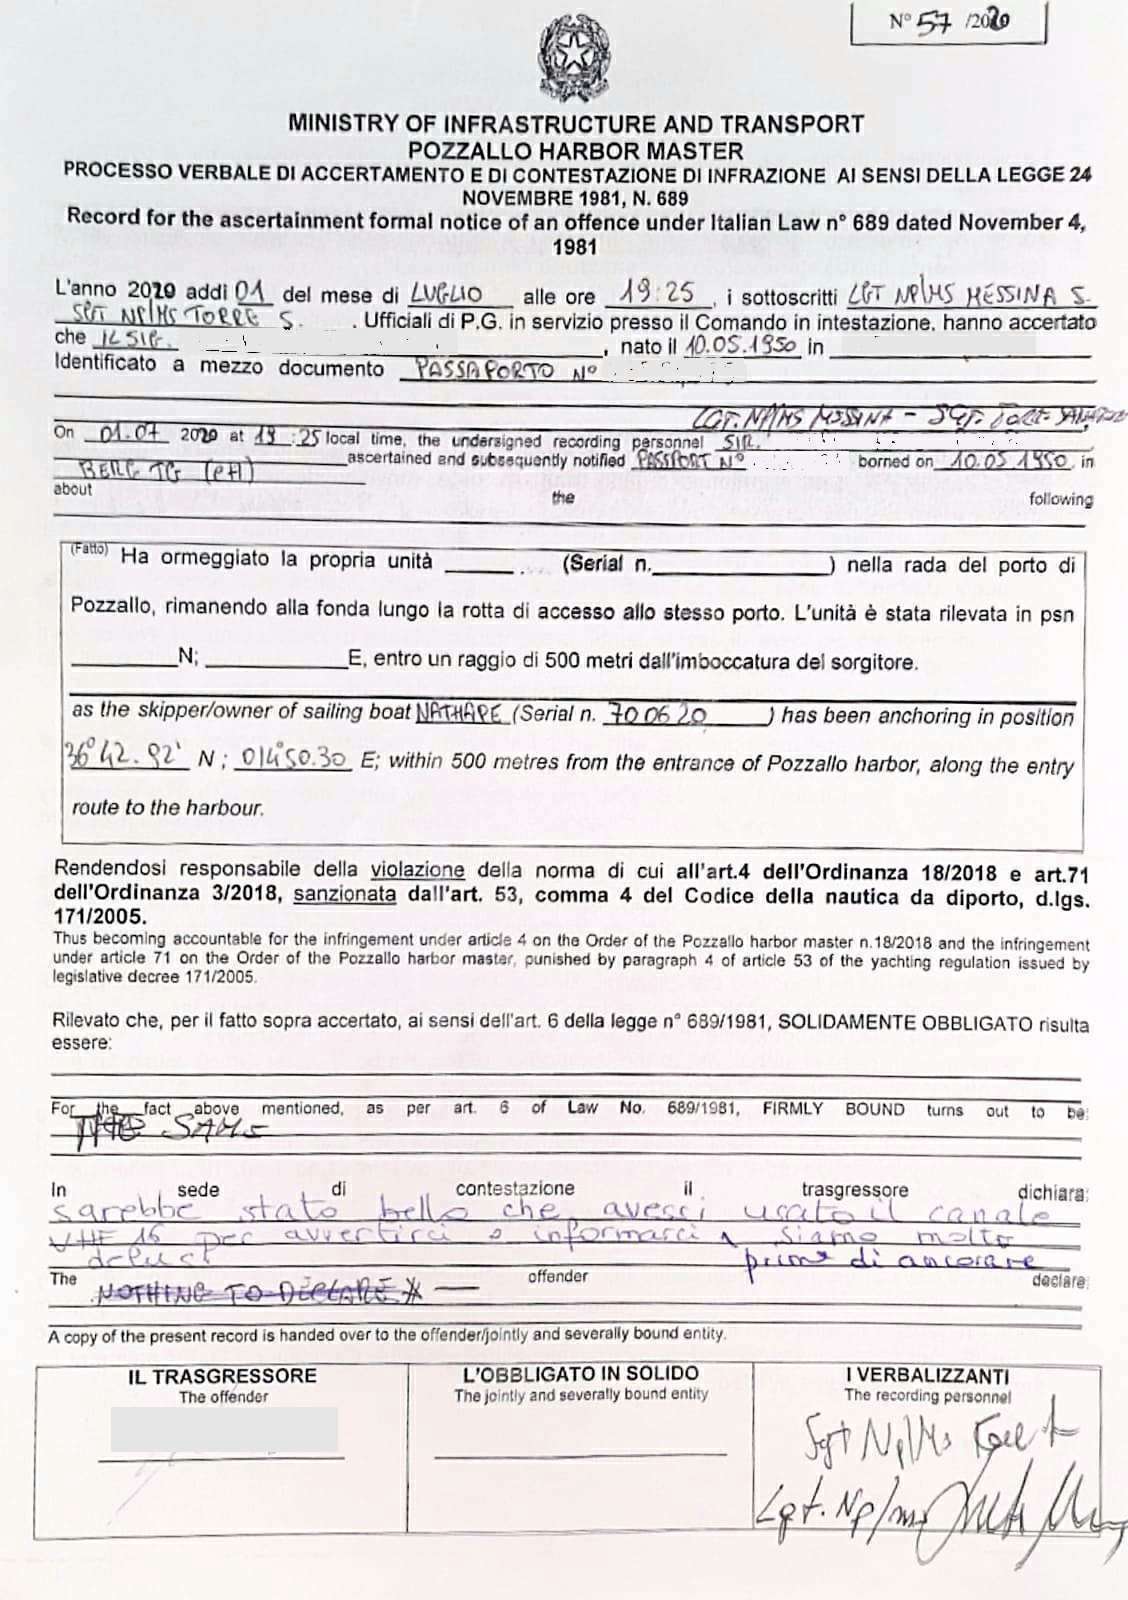 N° 57 /2020
MINISTRY OF INFRASTRUCTURE AND TRANSPORT
POZZALLO HARBOR MASTER
PROCESSO VERBALE DI ACCERTAMENTO E DI CONTESTAZIONE DI INFRAZIONE AI SENSI DELLA LEGGE 24
NOVEMBRE 1981, N. 689
Record for the ascertainment formal notice of an offence under Italian Law n° 689 dated November 4,
1981
L'anno 2020 addi 01 del mese di LUGLIO alle ore 19:25, i sottoscritti LGT NP/MS MESSINA S.
SGT NP/MS TORRE S. . Ufficiali di P.G. in servizio presso il Comando in intestazione, hanno accertato
che IL SIG. , nato il 10.05.1950 in
Identificato a mezzo documento PASSAPORTO N°
LGT. NP/MS MESSINA - SGT. TORRE
On 01.07 2020 at 19:25 local time, the undersigned recording personnel SIR.
BERG TG (CH) ascertained and subsequently notified PASSPORT N° borned on 10.05 1950, in
about the following
(Fatto) Ha ormeggiato la propria unità (Serial n. ) nella rada del porto di
Pozzallo, rimanendo alla fonda lungo la rotta di accesso allo stesso porto. L'unità è stata rilevata in psn
N; E, entro un raggio di 500 metri dall'imboccatura del sorgitore.
as the skipper/owner of sailing boat NATHAPE (Serial n. 700620 ) has been anchoring in position
36° 42.92' N ; 014°50.30 E; within 500 metres from the entrance of Pozzallo harbor, along the entry
route to the harbour.
Rendendosi responsabile della violazione della norma di cui all'art.4 dell'Ordinanza 18/2018 e art.71
dell'Ordinanza 3/2018, sanzionata dall'art. 53, comma 4 del Codice della nautica da diporto, d.lgs.
171/2005.
Thus becoming accountable for the infringement under article 4 on the Order of the Pozzallo harbor master n.18/2018 and the infringement
under article 71 on the Order of the Pozzallo harbor master, punished by paragraph 4 of article 53 of the yachting regulation issued by
legislative decree 171/2005.
Rilevato che, per il fatto sopra accertato, ai sensi dell'art. 6 della legge n° 689/1981, SOLIDAMENTE OBBLIGATO risulta
essere:
For the fact above mentioned, as per art. 6 of Law No. 689/1981, FIRMLY BOUND turns out to be:
THE SAME
In sede di contestazione il trasgressore dichiara:
sarebbe stato bello che avessi usato il canale
VHF 16 per avvertirci e informarci, siamo molto
delusi prima di ancorare
The offender declare:
NOTHING TO DECLARE
A copy of the present record is handed over to the offender/jointly and severally bound entity.
IL TRASGRESSORE
The offender
L'OBBLIGATO IN SOLIDO
The jointly and severally bound entity
I VERBALIZZANTI
The recording personnel
Sgt Np/Ms
Lgt. Np/ms